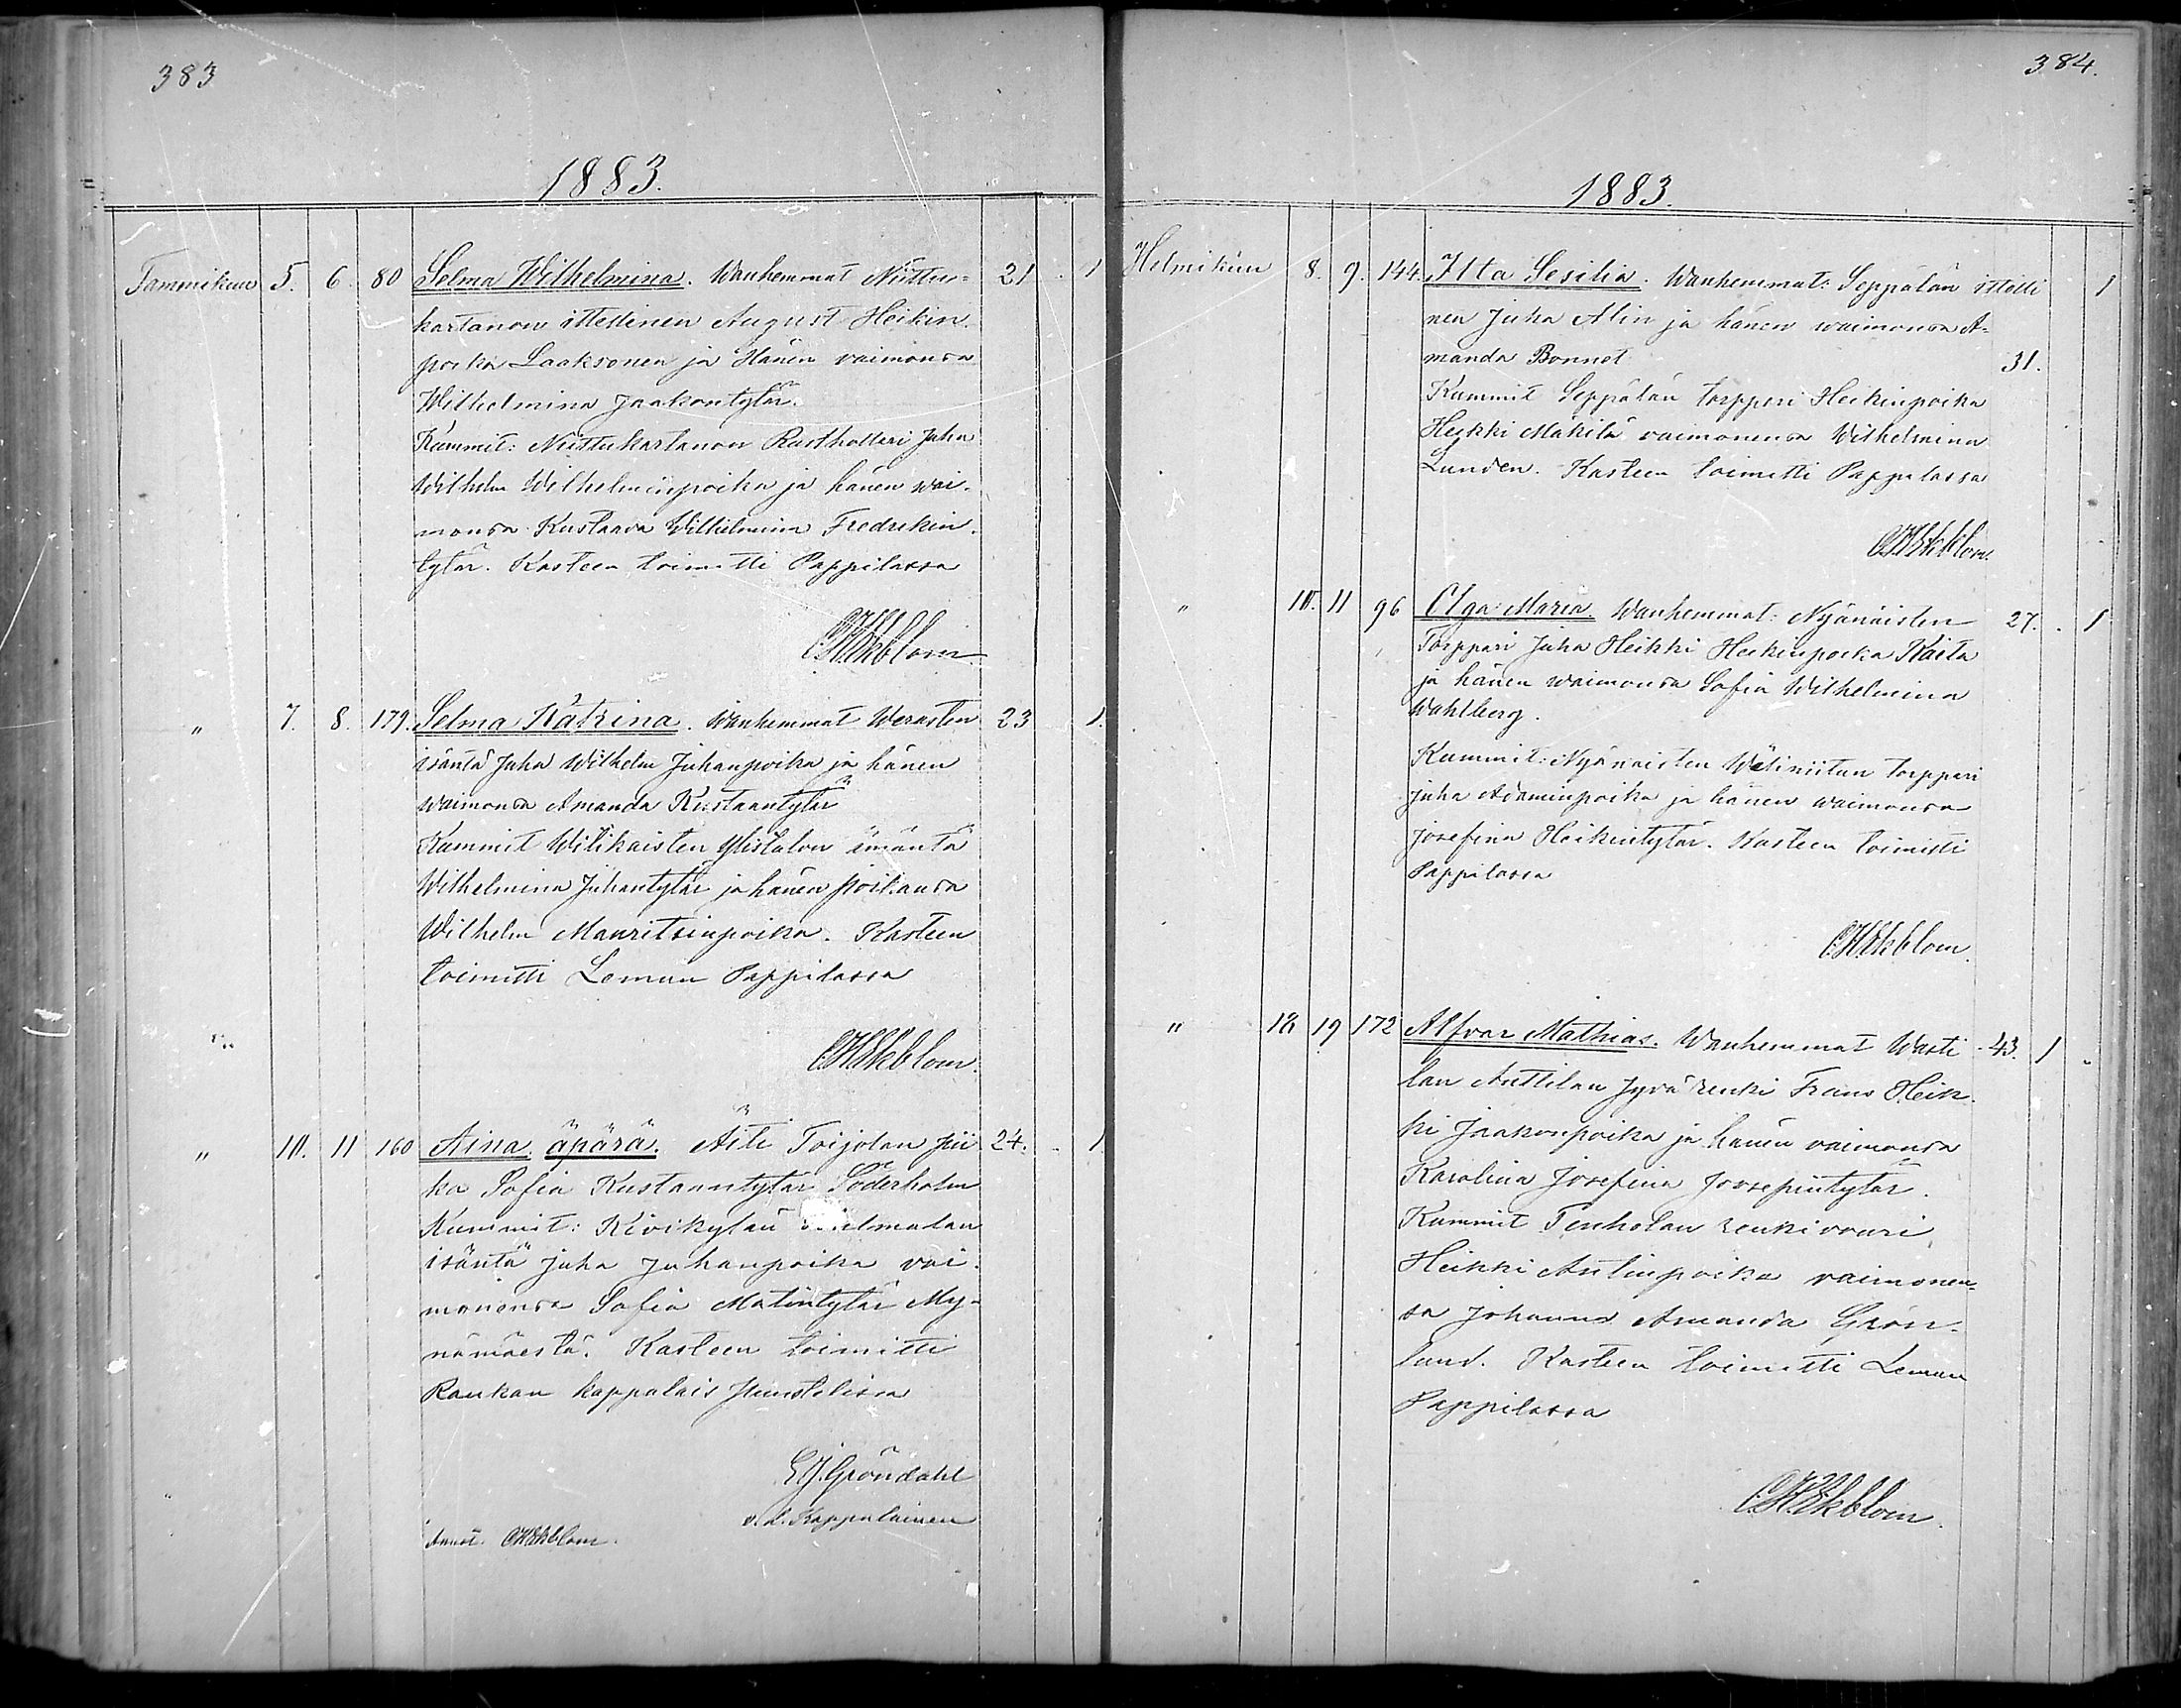 383
1883.
Tammikuu 5. 6. 80 Selma Wilhelmina. Wanhemmat Niittu= 21 1
kartanon ittellinen August Heikin
poika Laaksonen ja Hänen vaimonsa
Wilhelmina Jaakontytär.
Kummit: Niittukartanon Rusthollari Juha
Wilhelm Wilhelminpoika ja hänen wai-
monsa Kustaava Wilhelmina Fredrikin
tytär. Kasteen toimitti Pappilassa
CHEkblom
" 7. 8. 179. Selma Katrina. Wanhemmat Werasten 23 1.
isäntä Juha Wilhelm Juhanpoika ja hänen
waimonsa Amanda Kustaantytär
Kummit Wilikaisten Ylistalon emäntä
Wilhelmina Juhantytär ja hänen poikansa
Wilhelm Mauritsinpoika. Kasteen
toimitti Lemun Pappilassa
CHEkblom.
" 10. 11 160 Aina. äpärä. Äiti Toijolan pii 24. 1
ka Sofia Kustaantytär Söderholm
Kummit: Kivikylän
isäntä Juha Juhanpoika vai-
monensa Sofia Matintytär My-
nämäestä. Kasteen toimitti
Raukan kappalais
G.J. Gröndahl
v.a. Kappalainen
CHEkblom.
384.
1883.
Helmikuu 8. 9. 144. Ilta Sesilia. Wanhemmat: Seppälän ittelli 1
nen Juha Alin ja hänen waimonsa A=
manda Bonnet 31.
Kummit Seppälän torppari Heikinpoika
Heikki Mäkilä vaimonensa Wilhelmina
Lunden. Kasteen toimitti Pappilassa
CHEkblom
" 10. 11 96 Olga Maria. Wanhemmat: Nyänäisten 27. 1
Torppari Juha Heikki Heikinpoika Kaita
ja hänen waimonsa Sofia Wilhelmina
Wahlberg.
Kummit: Nyänäisten Wäliniitun torppari
Juha Adaminpoika ja hänen waimonsa
Josefina Heikintytär. Kasteen toimitti
Pappilassa
CHEkblom.
" 18 19 172 Alfvar Mathias. Wanhemmat Wasti 43. 1
lan Anttilan Jyvä renki Frans Heik
ki Jaakonpoika ja hänen vaimonsa
Karolina Josefina Joosepintytär.
Kummit Tenholan renkivouri
Heikki Antinpoika vaimonen-
sa Johanna Amanda Grön-
lund. Kasteen toimitti Lemun
Pappilassa
CHEkblom.